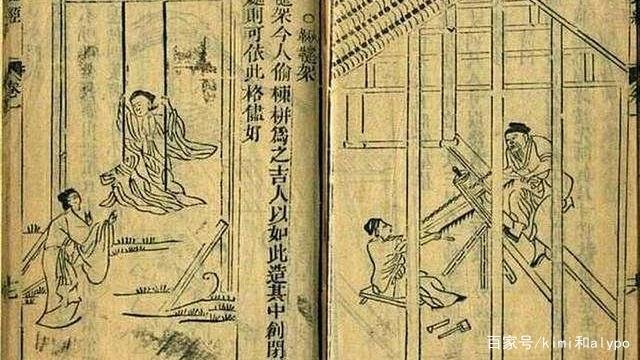 ○鞦韆架
架今人偷棟栟爲之吉人以如此造其中創閉
則可依此格儘好
經
卷一
七
百家号/kimi和alypo